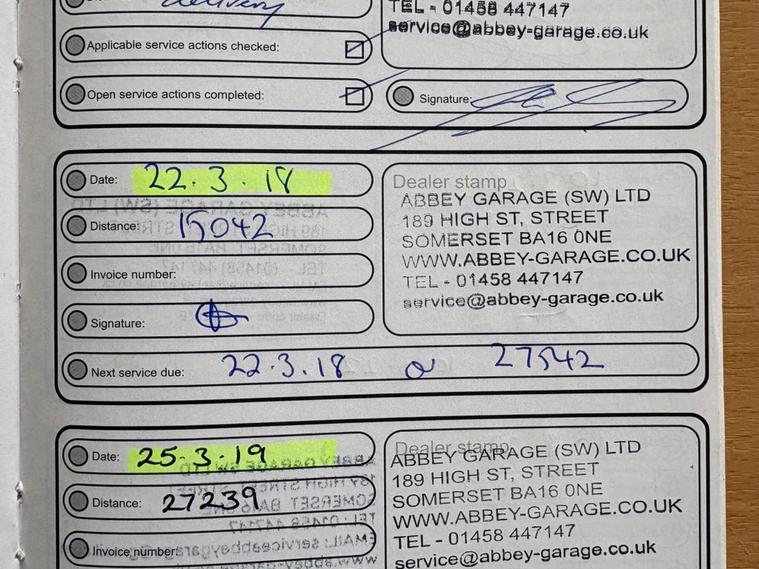 delivery
TEL - 01458 447147
service@abbey-garage.co.uk
Applicable service actions checked:
Open service actions completed:
Signature:
Date: 22.3.18
Distance: 15042
Invoice number:
Signature:
Next service due: 22.3.18 or 27542
Dealer stamp
ABBEY GARAGE (SW) LTD
189 HIGH ST, STREET
SOMERSET BA16 0NE
WWW.ABBEY-GARAGE.CO.UK
TEL - 01458 447147
service@abbey-garage.co.uk
Date: 25.3.19
Distance: 27239
Invoice number:
Dealer stamp
ABBEY GARAGE (SW) LTD
189 HIGH ST, STREET
SOMERSET BA16 0NE
WWW.ABBEY-GARAGE.CO.UK
TEL - 01458 447147
service@abbey-garage.co.uk